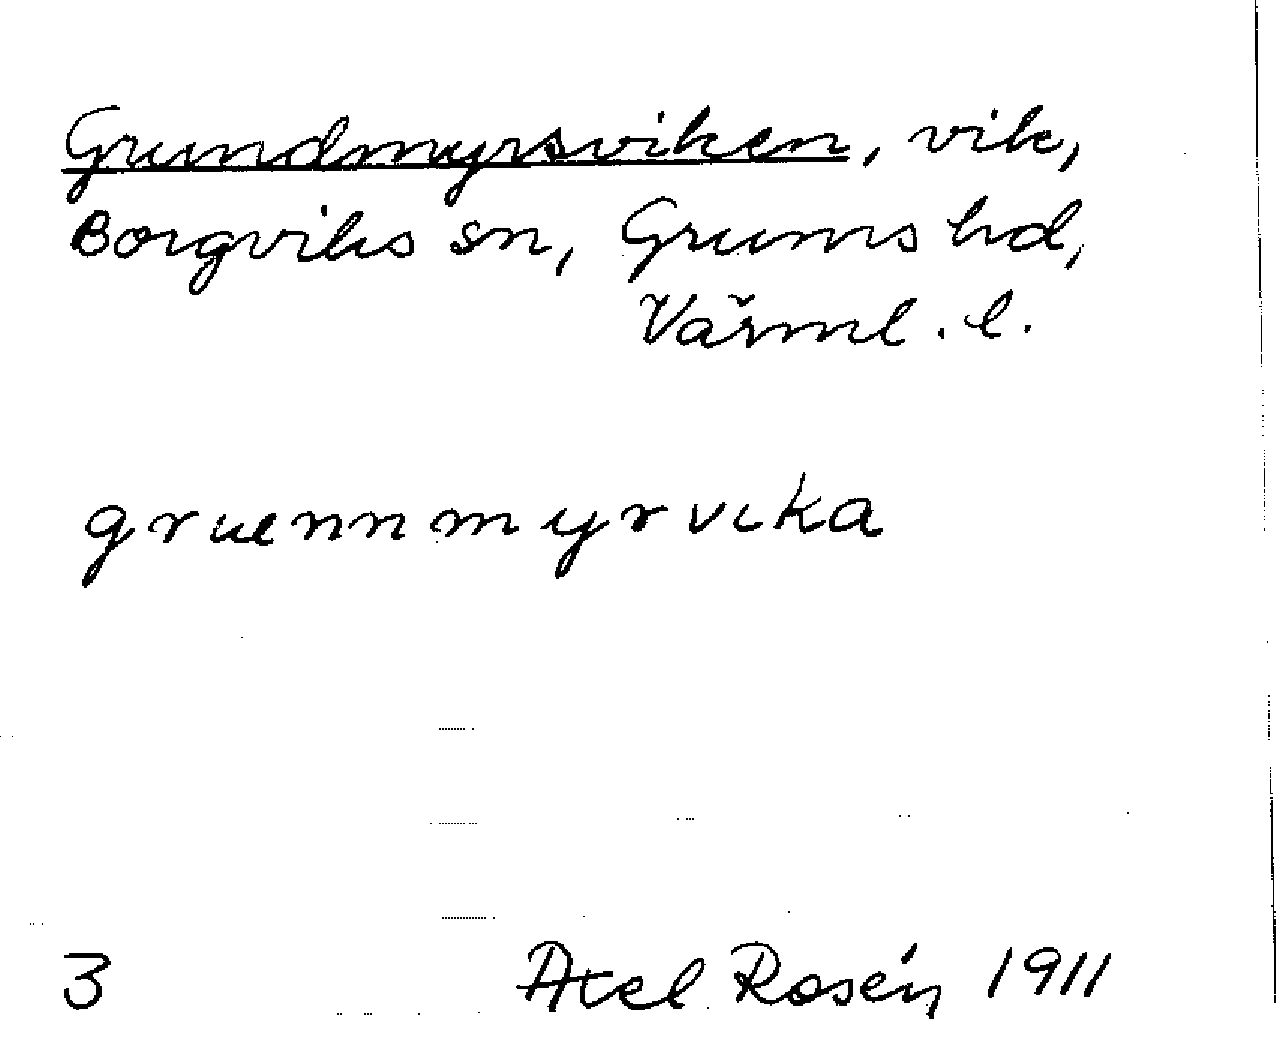 Grundmyrsviken, vik,
Borgviks sn, Grums hd,
Värml. l.
gruennmyrvika
3 Axel Rosén 1911